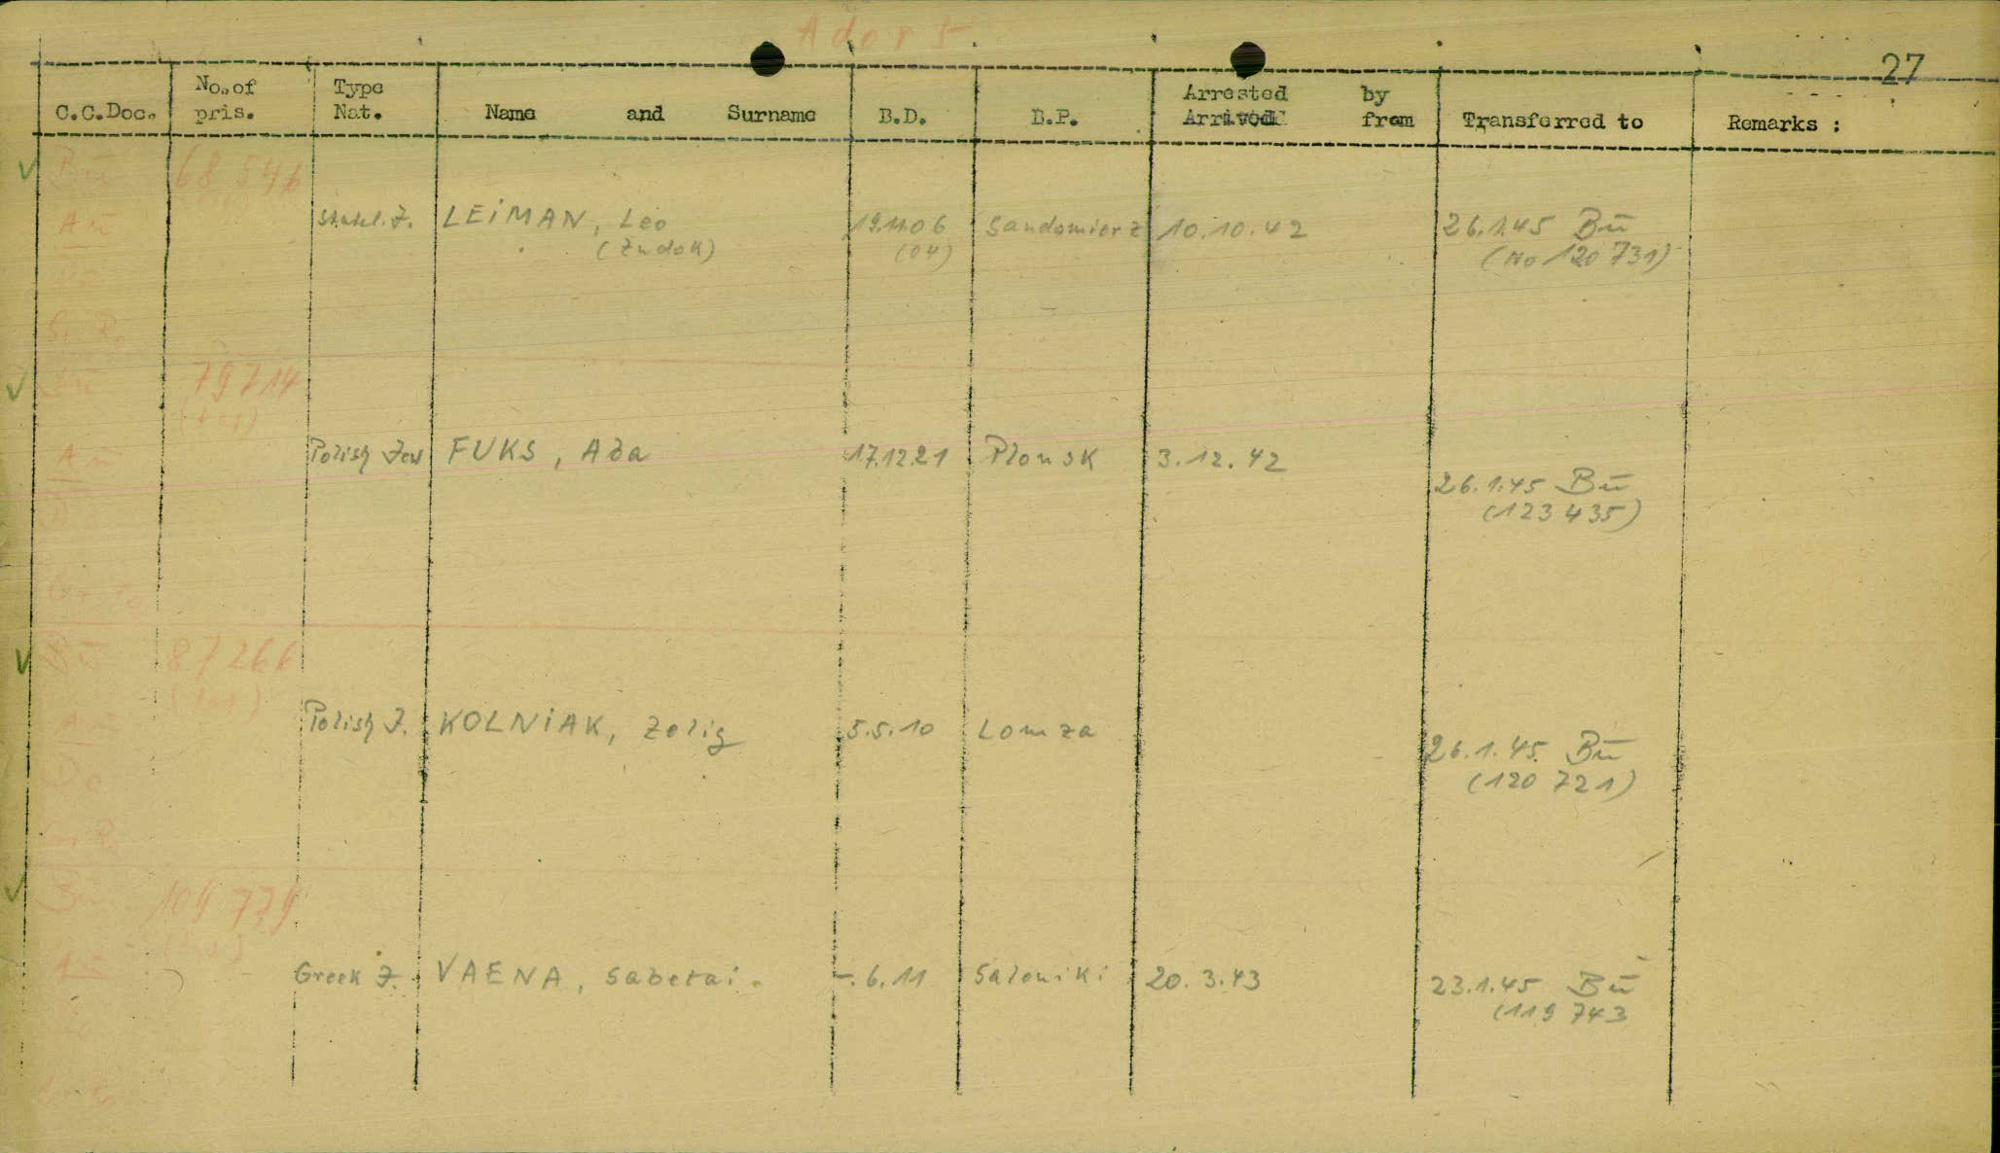 Ador 5
27
C.C.Doc. No. of pris. Type Nat. Name and Surname B.D. B.P. Arrested by Arrived from Transferred to Remarks :
Bu 68 546
Au Staatl. J. LEIMAN, Leo 19.11.06 Sandomierz 10.10.42 26.1.45 Bu
(Zudok) (04) (No 120 731)
Bu 79714
Au Polish Jew FUKS, Ada 17.12.21 Plonsk 3.12.42
26.1.45 Bu
(123 435)
Bu 87266
Polish J. KOLNIAK, Zelig 5.5.10 Lomza
26.1.45 Bu
Do (120 721)
Bu 109 779
Greek J. VAENA, Sabetai. -.6.11 Saloniki 20.3.43 23.1.45 Bu
(119 743